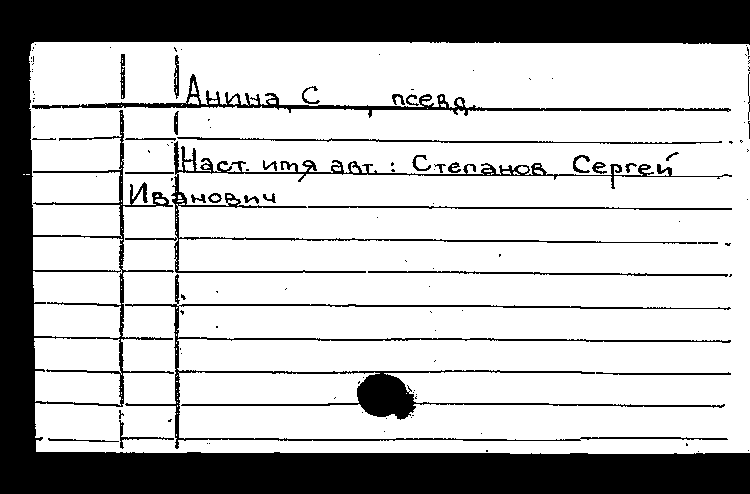 Анина, С , псевд.
Наст. имя авт. : Степанов, Сергей
Иванович